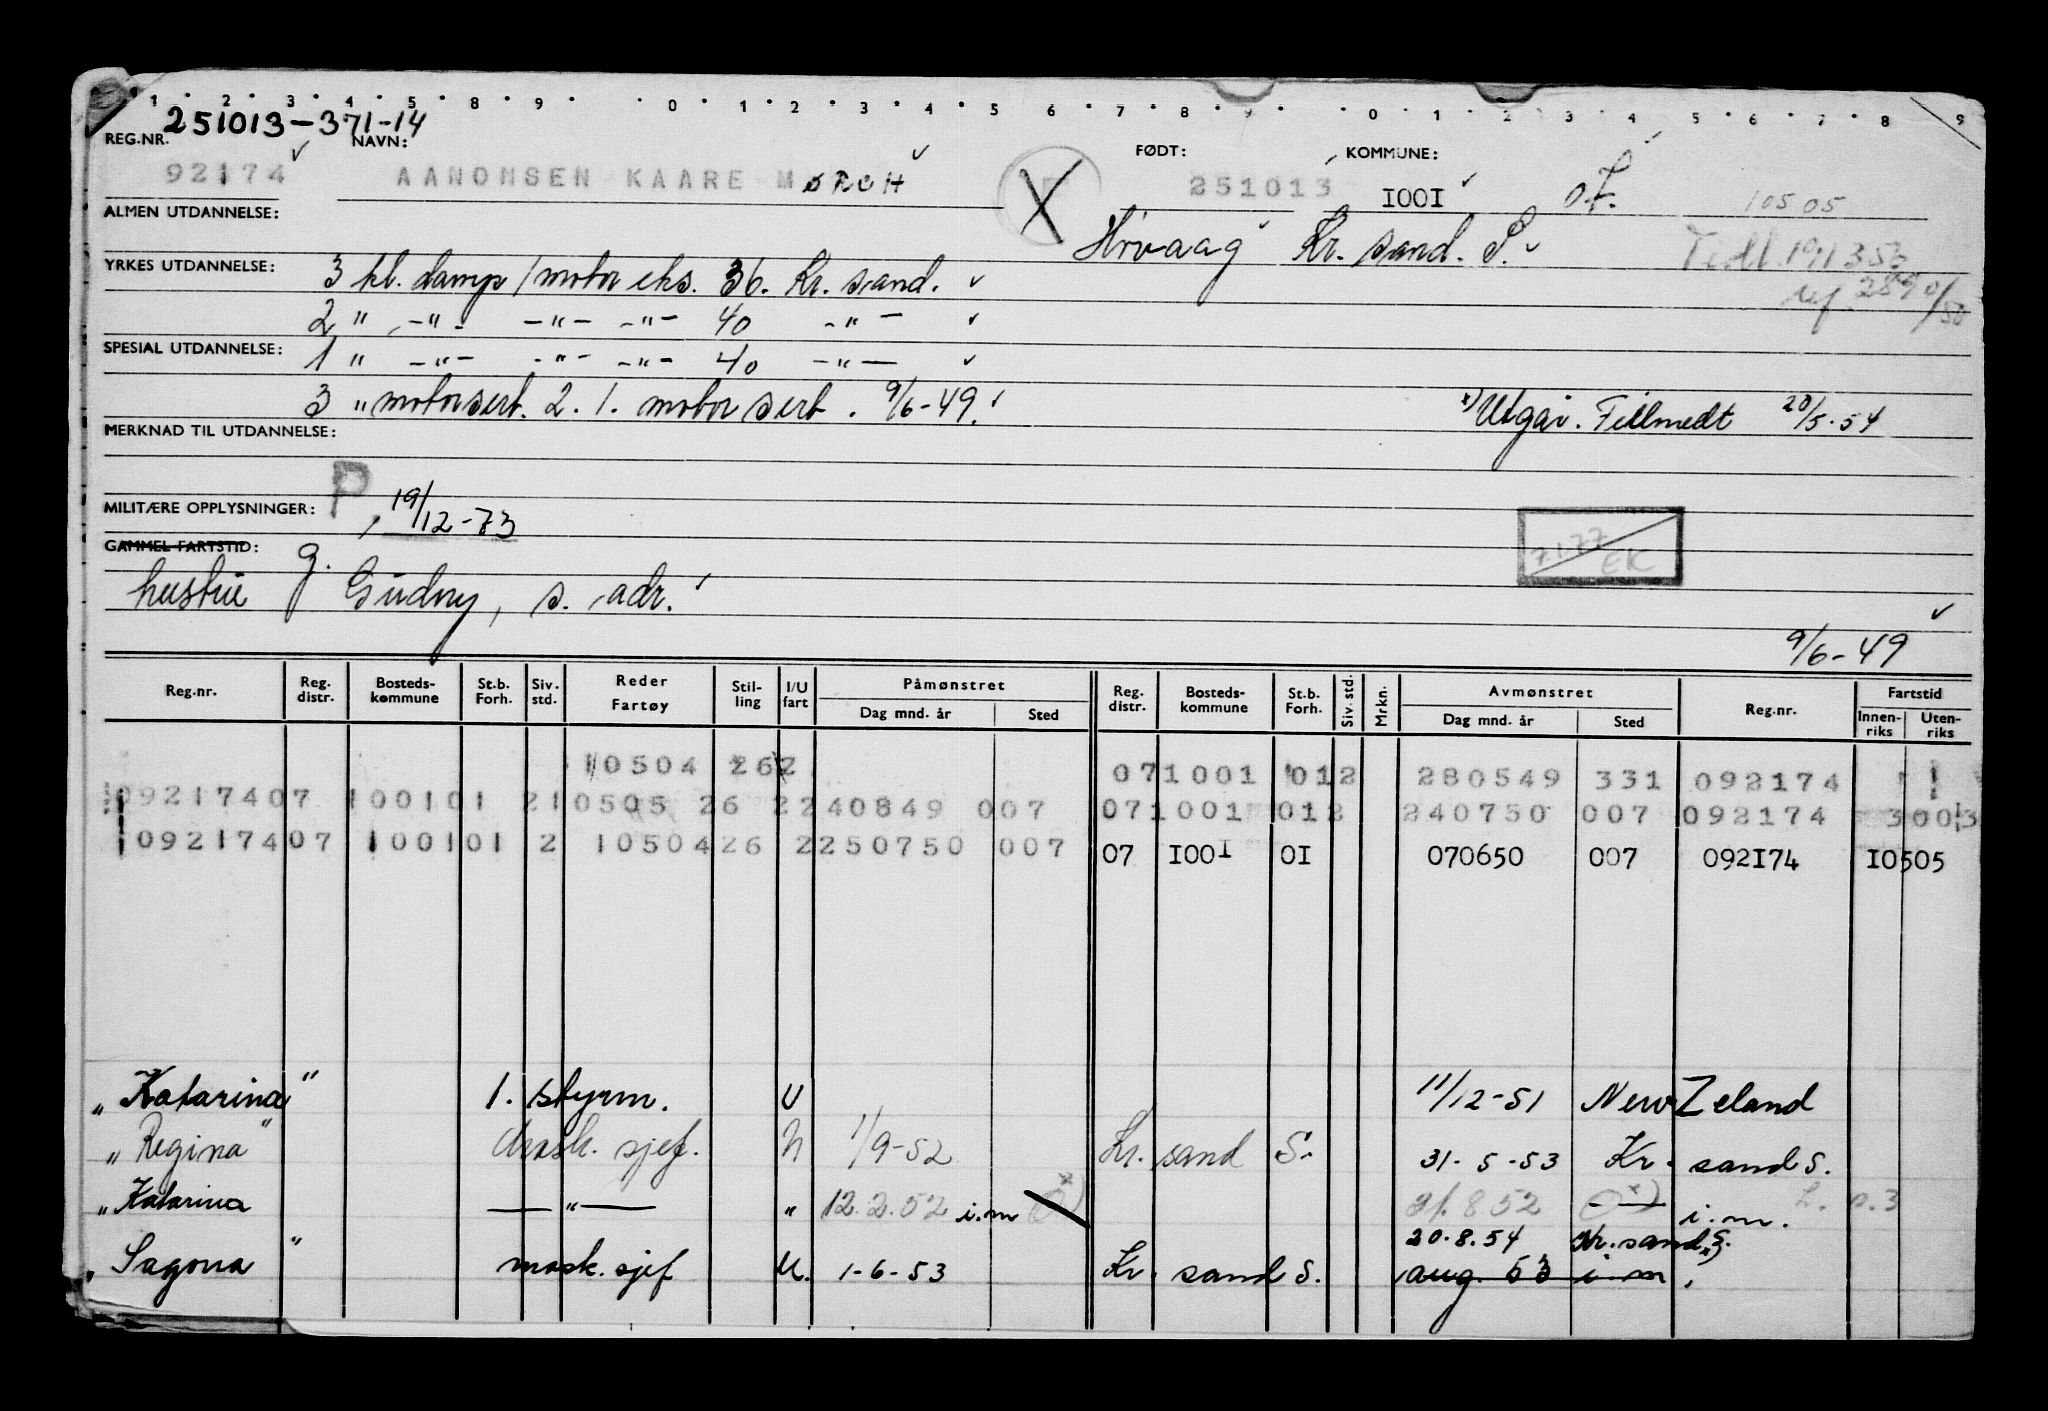 1 2 3 4 5 8 9 0 1 2 3 4 5 6 7 8 9 0 1 2 3 4 5 6 7 8 9
251013-371-14
REG.NR. NAVN: FØDT: KOMMUNE:
92174 AANONSEN KAARE MØRCH 251013 1001 105 05
ALMEN UTDANNELSE:
Kr. sand. S.
YRKES UTDANNELSE: 3 kl. damp/motor eks. 36. Kr. sand.
2 " -"- -"- -"- 40 -"-
SPESIAL UTDANNELSE: 1 " -"- -"- -"- 40 -"-
3 " motorsert. 2. 1. motor sert. 9/6-49. x) Utgår. Tillmedt 20/5-54
MERKNAD TIL UTDANNELSE:
MILITÆRE OPPLYSNINGER: P, 19/12-73
GAMMEL FARTSTID:
7177 EK
hustru g. Gudny, s. adr.
9/6-49
Reg.nr. Reg. distr. Bosteds-kommune St.b. Forh. Siv. std. Reder Fartøy Stil-ling I/U fart Påmønstret Dag mnd. år Sted Reg. distr. Bosteds-kommune St.b. Forh. Siv. std. Mrkn. Avmønstret Dag mnd. år Sted Reg.nr. Fartstid Innen-riks Uten-riks
10504 262 071001 012 280549 331 092174
09217407 100101 210505 26 2240849 007 071001 012 240750 007 092174 3003
09217407 100101 2 1050426 2250750 007 07 1001 01 070650 007 092174 10505
"Katarina" 1. styrm. U 11/12-51 New Zeland
"Regina" mask. sjef. 1/9-52 Kr. sand S. 31-5-53 Kr. sand S.
"Katarina -"- " 12.2.52 i.m 8.52 i.m.
20.8.54 Kr. sand S.
"Sagona" mask. sjef U. 1-6-53 Kr. sand S. aug. 53 i m.